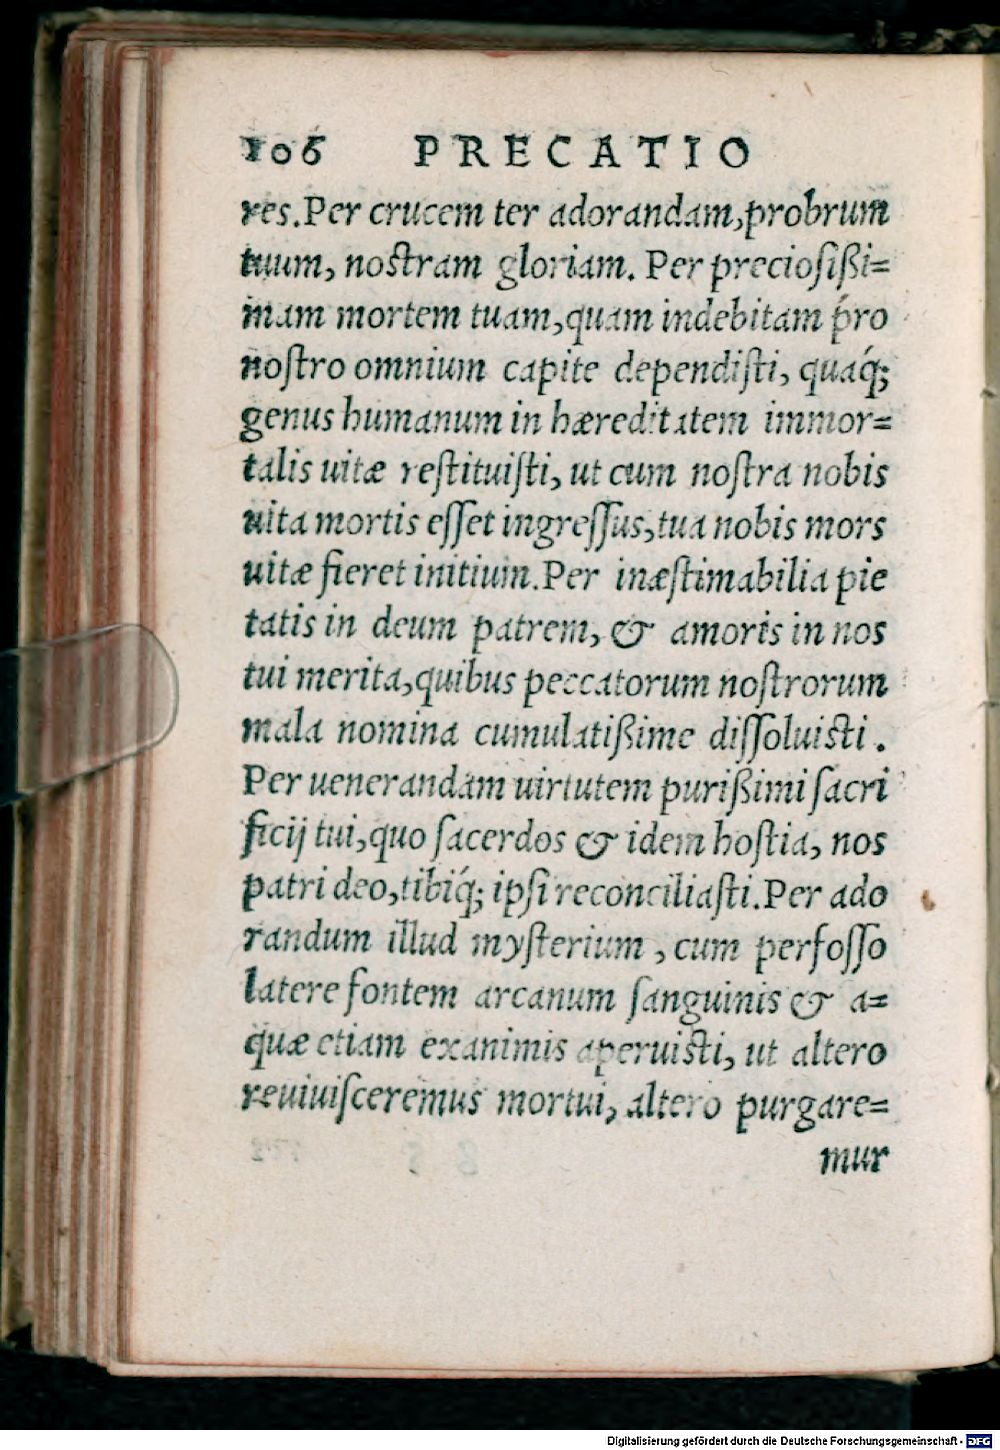 106 PRECATIO
res. Per crucem ter adorandam, probrum
tuum, noſtram gloriam. Per precioſißi=
mam mortem tuam, quam indebitam pro
noſtro omnium capite dependiſti, quaq́;
genus humanum in hæreditatem immor=
talis uitæ reſtituiſti, ut cum noſtra nobis
uita mortis eſſet ingreſſus, tua nobis mors
uitæ fieret initium. Per inæſtimabilia pie
tatis in deum patrem, & amoris in nos
tui merita, quibus peccatorum noſtrorum
mala nomina cumulatißime diſſoluiſti.
Per uenerandam uirtutem purißimi ſacri
ficij tui, quo ſacerdos & idem hoſtia, nos
patri deo, tibiq́; ipſi reconciliaſti. Per ado
randum illud myſterium, cum perfoſſo
latere fontem arcanum ſanguinis & a=
quæ etiam exanimis aperuiſti, ut altero
reuiuiſceremus mortui, altero purgare=
mur
Digitalisierung gefördert durch die Deutsche Forschungsgemeinschaft - DFG